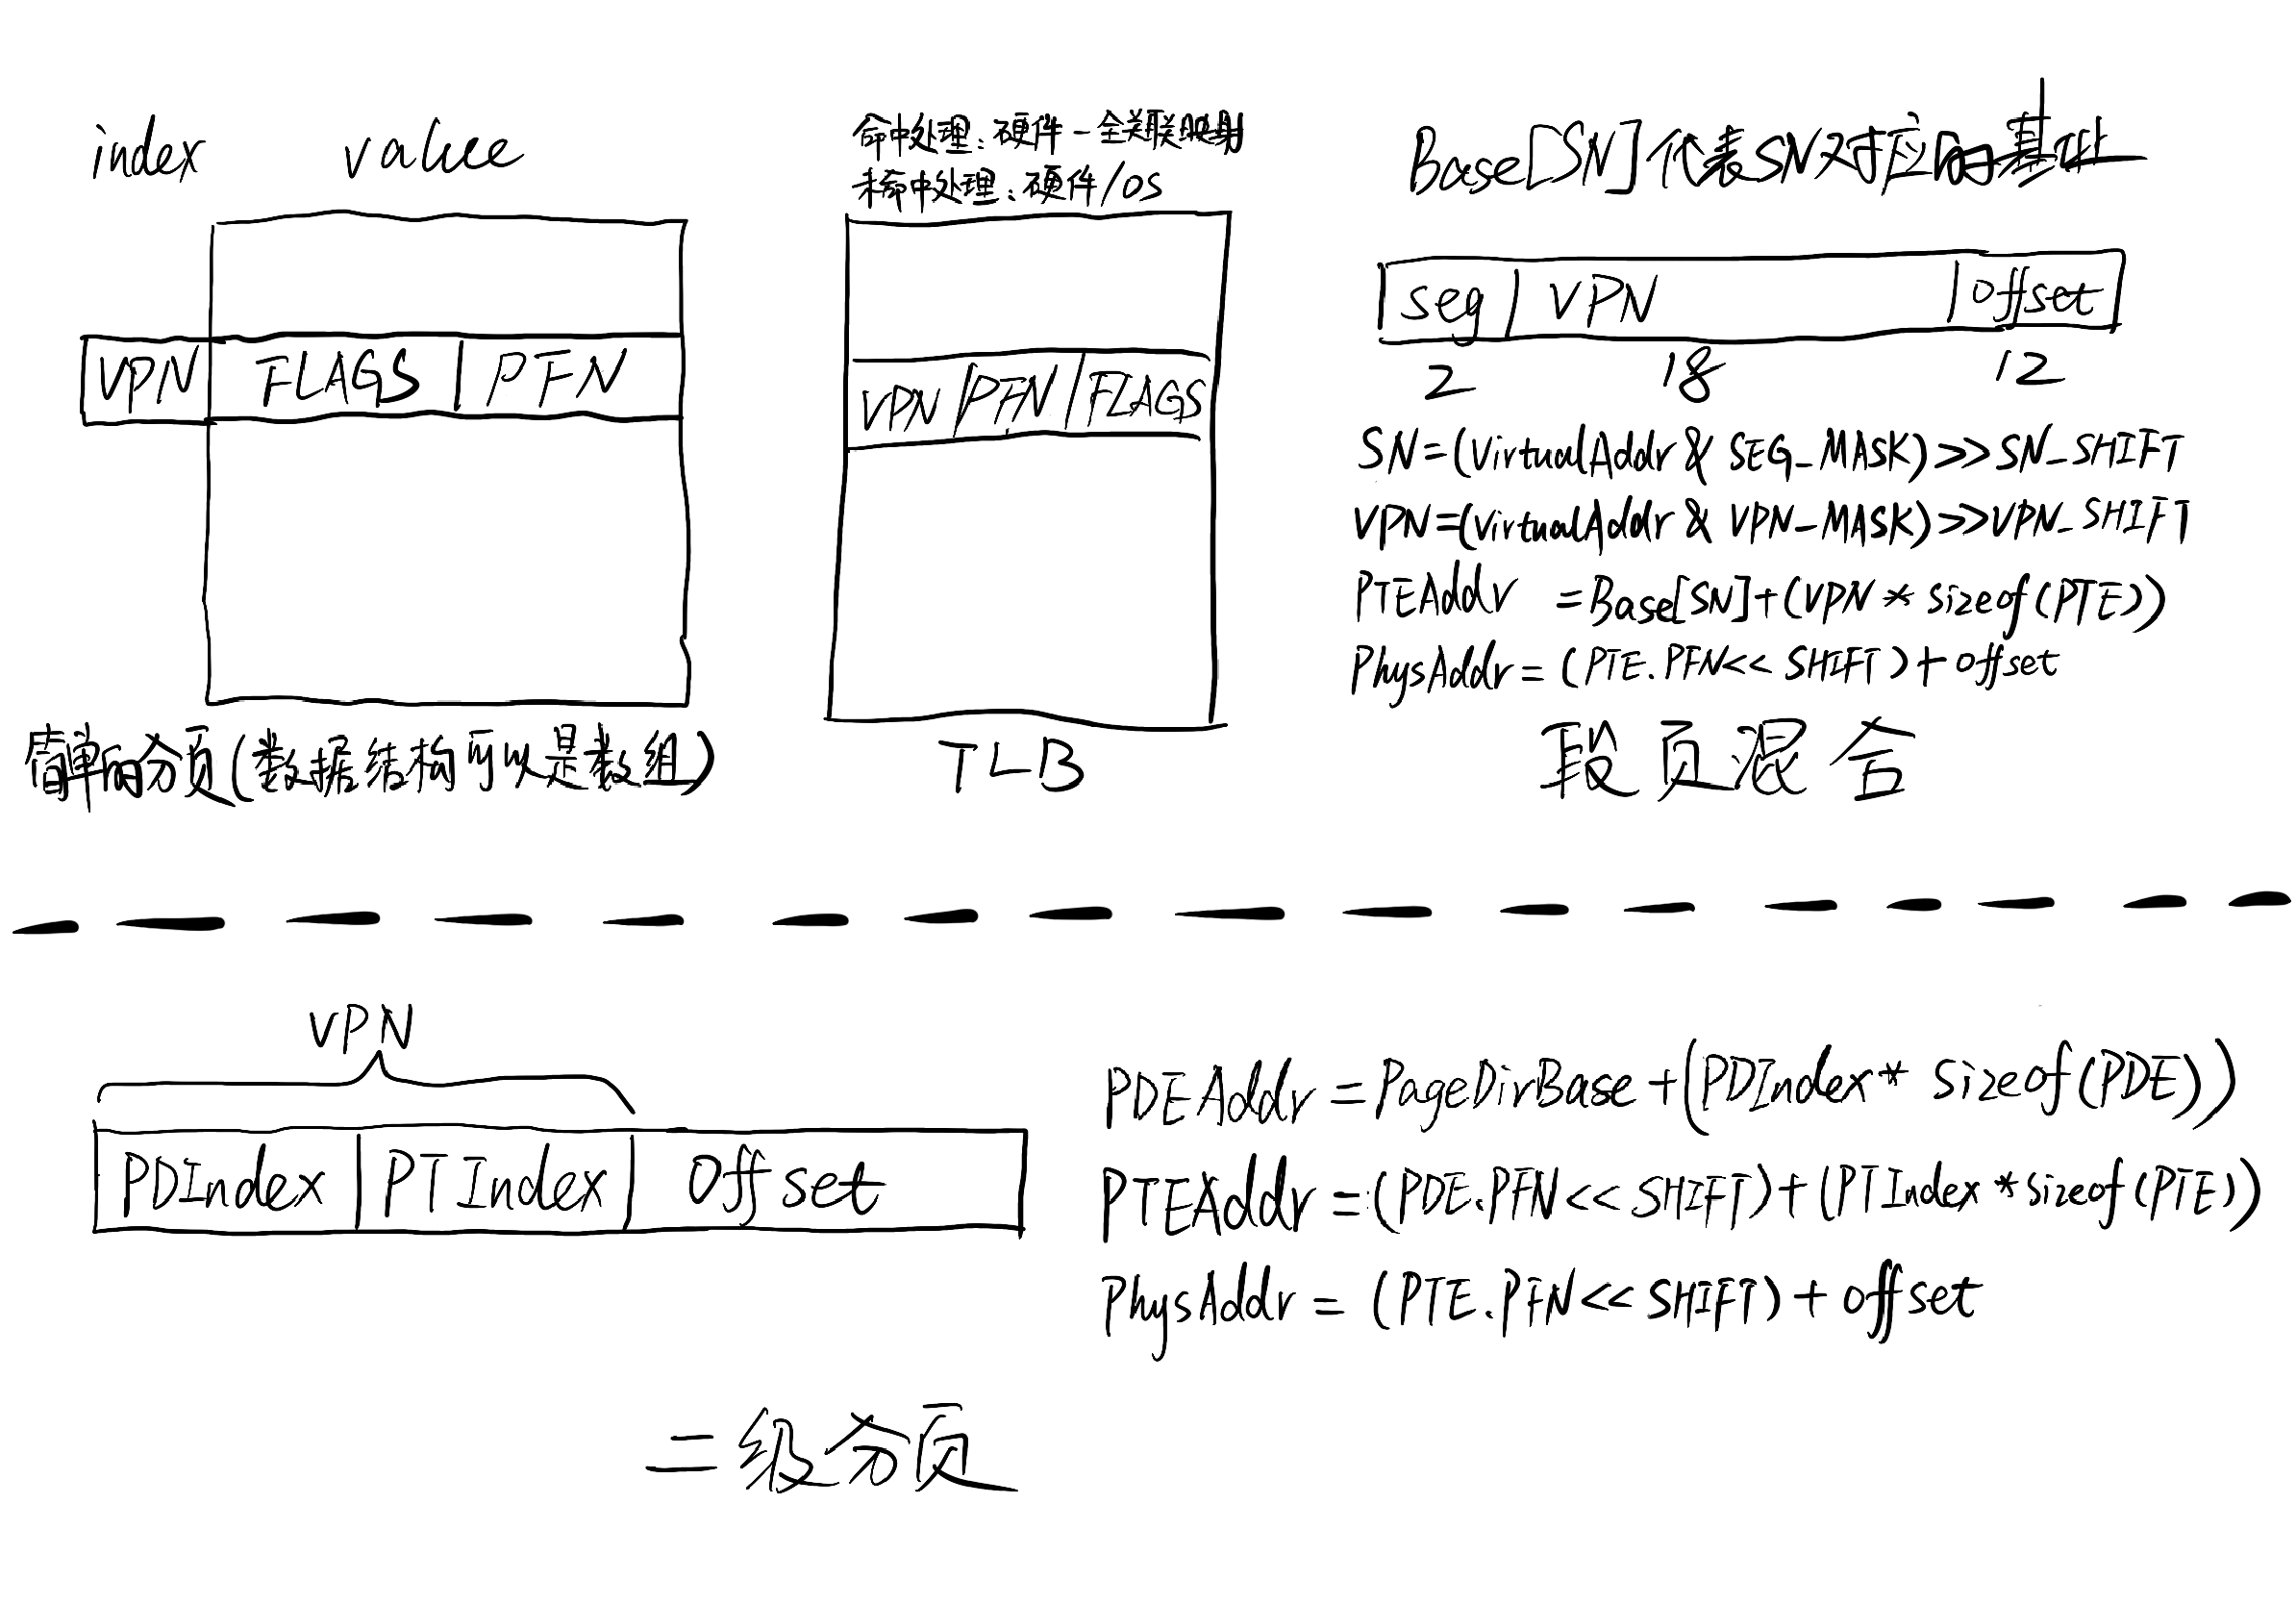 index value
VPN FLAGS PFN
简单的分页(数据结构可以是数组)
命中处理:硬件-全关联映射
未命中处理:硬件/OS
VPN PFN FLAGS
TLB
Base[SN]代表SN对应的基址
seg VPN offset
2 18 12
SN=(VirtualAddr & SEG_MASK)>>SN_SHIFT
VPN=(VirtualAddr & VPN_MASK)>>VPN_SHIFT
PTEAddr =Base[SN]+(VPN * sizeof(PTE))
PhysAddr=(PTE.PFN<< SHIFT)+offset
段页混合
VPN
PDIndex PTIndex Offset
PDEAddr=PageDirBase+(PDIndex* sizeof(PDE))
PTEAddr=(PDE.PFN<<SHIFT)+(PTIndex*sizeof(PTE))
PhysAddr=(PTE.PFN<<SHIFT)+offset
二级分页